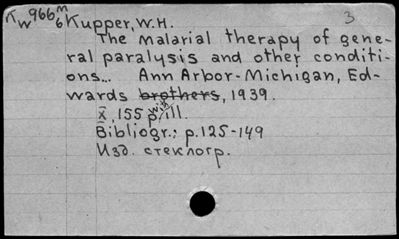 Kw966м/6 Kupper, W.H. 3
The malarial therapy of gene-
ral paralysis and other conditi-
ons... Ann Arbor-Michigan, Ed-
wards brothers, 1939.
X, 155 p. with ill.
Bibliogr.: p. 125-149
Изд. стеклогр.